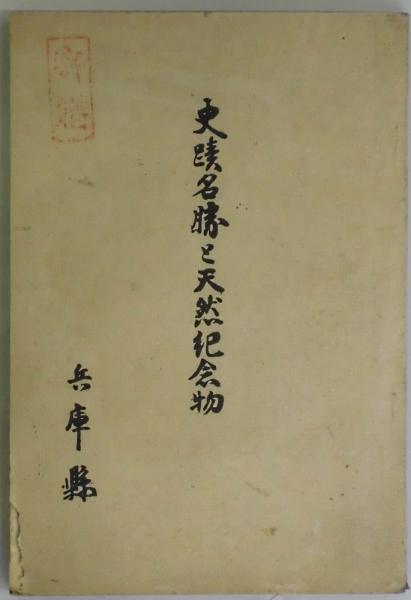 史蹟名勝と天然紀念物
兵庫縣